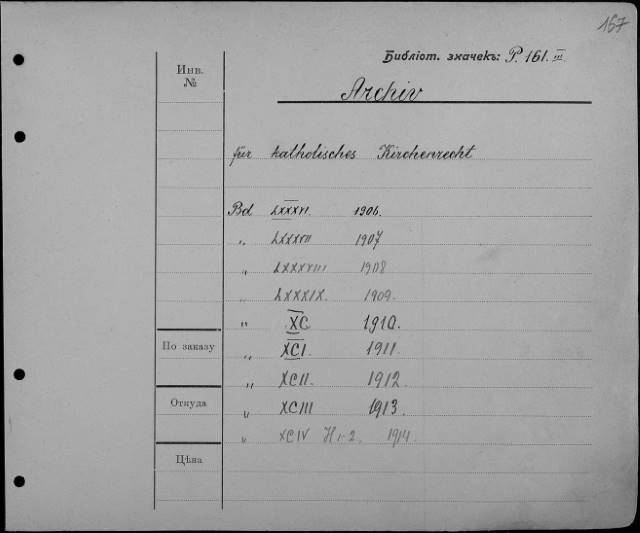 157
Библіот. значекъ: P. 161. III.
Инв.
№
Archiv
fur katholisches Kirchenrecht
Bd LXXXVI. 1906.
„ LXXXVII 1907
„ LXXXVIII 1908
„ LXXXIX. 1909.
„ XC 1910.
По заказу
„ XCI. 1911.
„ XCII. 1912.
Откуда
„ XCIII 1913.
„ XCIV H 1-2. 1914.
Цѣна